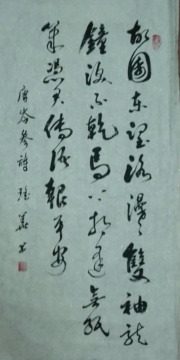 故園東望路漫漫雙袖龍
鐘淚不乾馬上相逢無紙
筆憑君傳語報平安
唐岑參詩 瑶嘉书